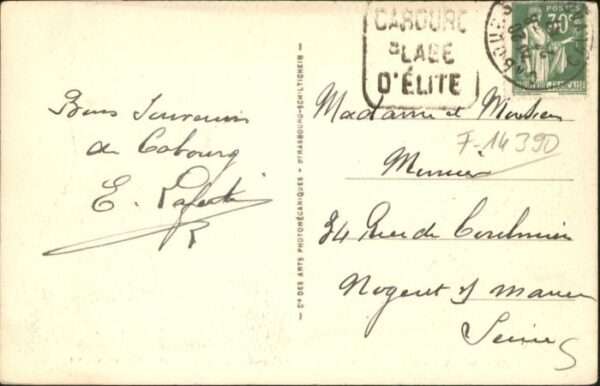 Bons Souvenirs
de Cabourg
E.
Cie DES ARTS PHOTOMÉCANIQUES - STRASBOURG-SCHILTIGHEIM
CABOURG
PLAGE
D'ÉLITE
POSTES
30c
Madame et Monsieur
F-14390
34 Rue de
Nogent s/ Marne
Seine